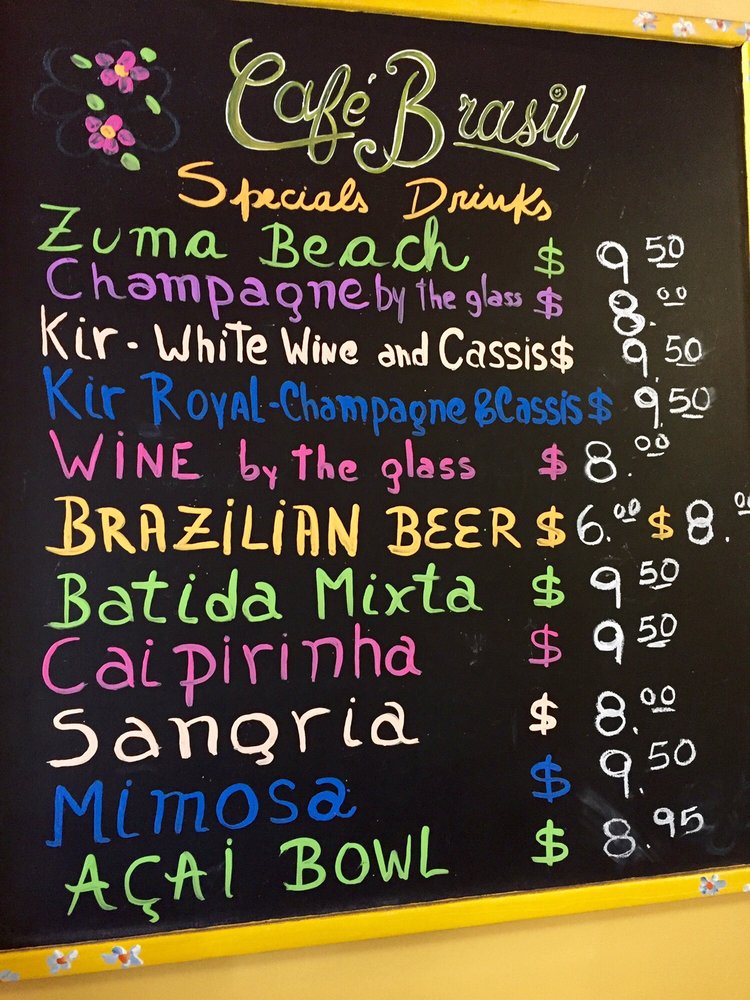 Café Brasil
Specials Drinks
Zuma Beach $ 9 50
Champagne by the glass $ 8.00
Kir - White Wine and Cassis $ 9.50
Kir Royal - Champagne & Cassis $ 9.50
WINE by the glass $ 8.00
BRAZILIAN BEER $ 6.00 $ 8.00
Batida Mixta $ 9 50
Caipirinha $ 9 50
Sangria $ 8.00
Mimosa $ 9.50
AÇAI BOWL $ 8.95